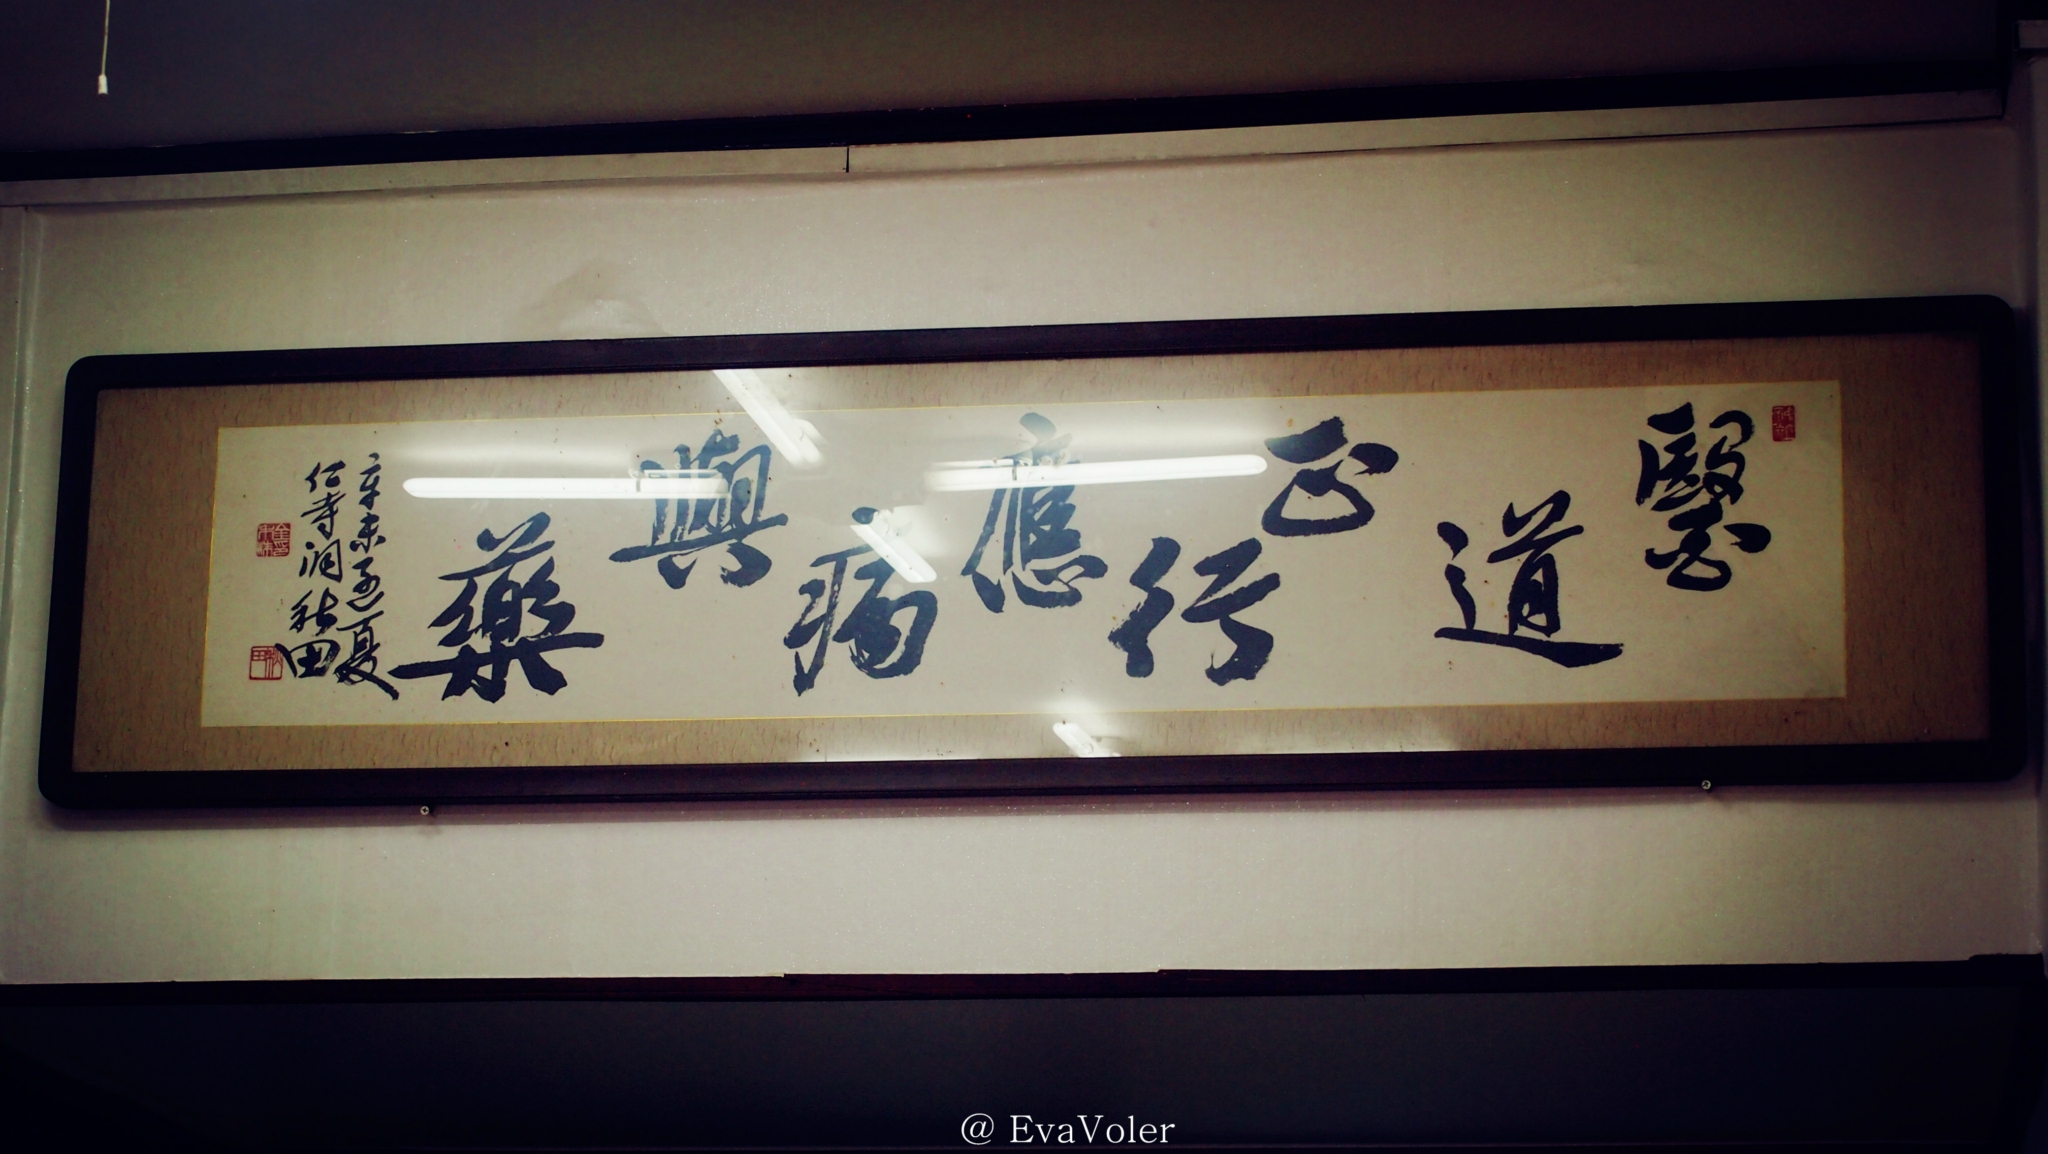 醫道正行應病與藥
辛未孟夏
仁寺洞 秋田
@ EvaVoler